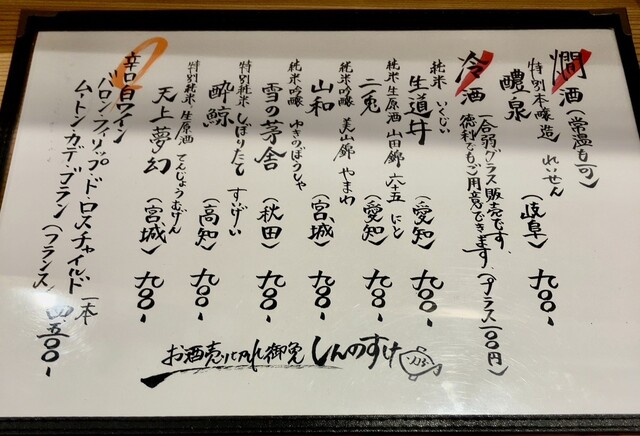 燗酒(常温も可)
特別本醸造 れいせん
醴泉(岐阜)九〇〇~
冷酒
一合弱グラス販売です。
徳利でもご用意できます。(グラス一〇〇円)
純米 いくじい
生道井(愛知)九〇〇~
純米生原酒 山田錦 六十五 にと
二兎(愛知)九〇〇~
純米吟醸 美山錦 やまわ
山和(宮城)九〇〇~
純米吟醸 ゆきのぼうしゃ
雪の茅舎(秋田)九〇〇~
特別純米 しぼりたて すいげい
酔鯨(高知)九〇〇~
特別純米 生原酒 てんじょうむげん
天上夢幻(宮城)九〇〇~
辛口白ワイン
バロン・フィリップ・ド・ロスチャイルド 一本
ムートン・カデ・ブラン(フランス)四、五〇〇~
お酒売り切れ御免 しんのすけ